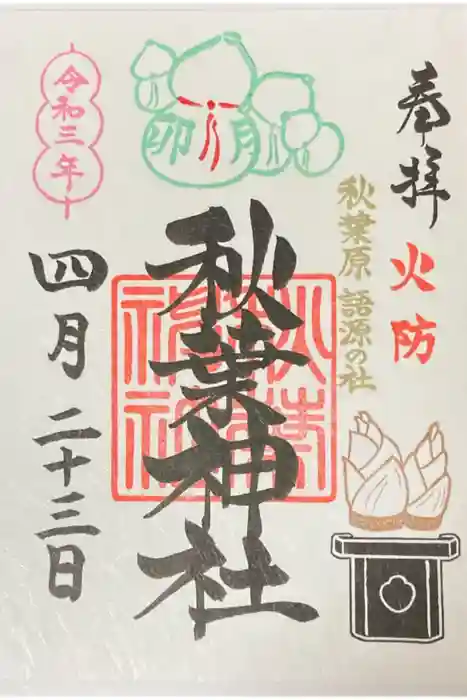 奉拝
火防
秋葉原 語源の社
卯月
秋葉神社
秋葉神社
令和三年
四月 二十三日